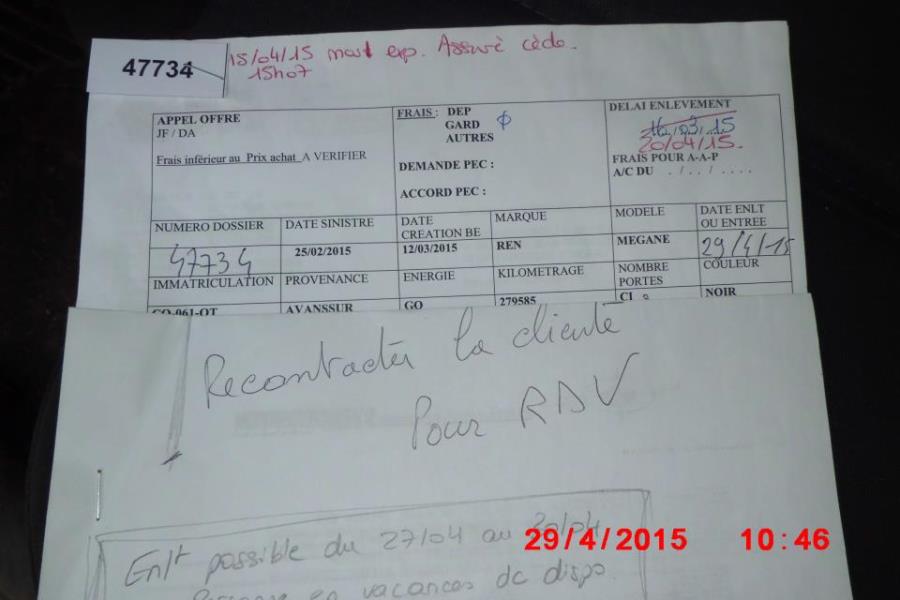 47734
15/04/15 mail exp. Assuré cède.
15h07
APPEL OFFRE
JF / DA
Frais inférieur au Prix achat A VERIFIER
FRAIS : DEP
GARD
AUTRES
DEMANDE PEC :
ACCORD PEC :
DELAI ENLEVEMENT
16/03/15
20/04/15.
FRAIS POUR A-A-P
A/C DU . / . . / . . . .
NUMERO DOSSIER DATE SINISTRE DATE CREATION BE MARQUE MODELE DATE ENLT OU ENTREE
47734 25/02/2015 12/03/2015 REN MEGANE 29/4/15
IMMATRICULATION PROVENANCE ENERGIE KILOMETRAGE NOMBRE PORTES COULEUR
CQ-061-QT AVANSSUR GO 279585 CI NOIR
Recontacter la cliente
Pour RDV
Enlt possible du 27/04 au 30/04
en vacances de dispo
29/4/2015 10:46